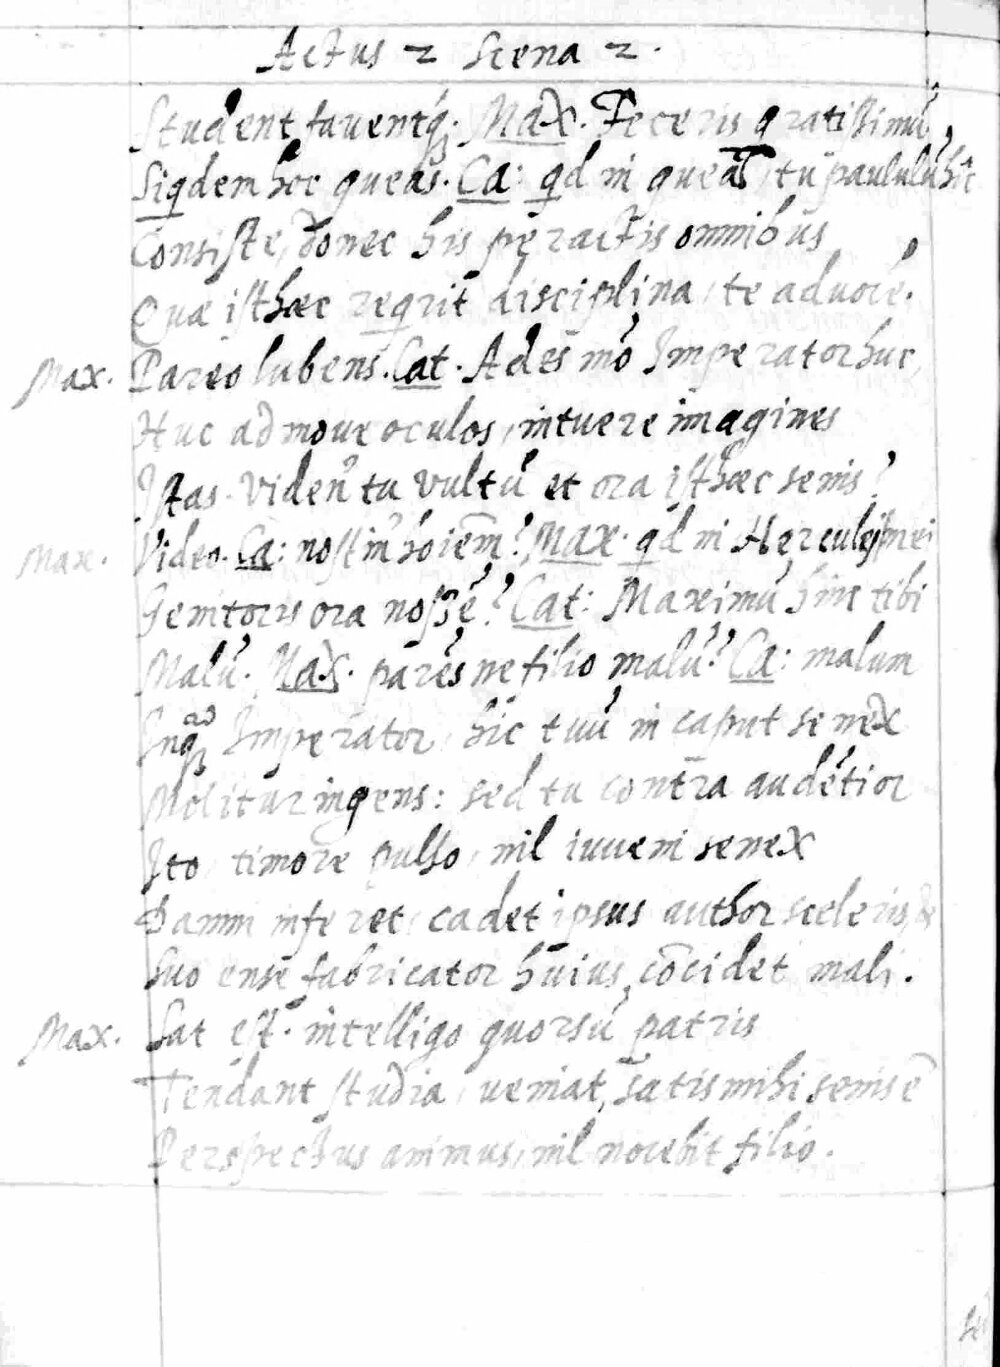 Actus 2 Scena 2.
Student faventq;. Max. Feceris gratissimū,
Siqdem hoc queās. Ca: qd ni queā, tū paululū hîc
Consiste, donec his peractis omnibus
Quæ isthæc reqrit disciplina, te advocē.
Max. Pareo lubens. Cat. Ades mō Imperator huc,
Huc admove oculos, intuere imagines
Istas. viden' tu vultū et ora isthæc senis?
Max. Video. Ca: nostin' hōiem? Max. qd ni Herculei mei
Genitoris ora nossē? Cat: Maximū hinc tibi
Malū. Max. parēsne filio malū? Ca: malum
Inqā Imperator, hic tuū in caput senex
Molitur ingens: sed tu contra audētior
Ito, timore pulso, nil iuveni senex
Damni inferet, cadet ipsus author sceleris, &
Suo ense fabricator huius cōcidet mali.
Max. Sat est. intelligo quorsū patris
Tendant studia, veniat, satis mihi senis ē
Perspectus animus, nil nocebit filio.